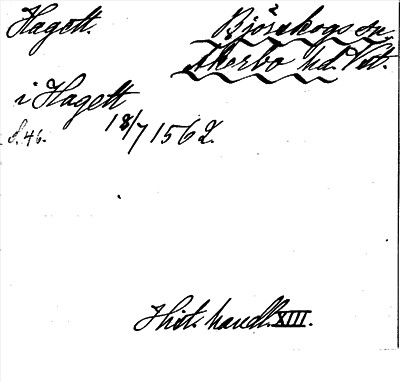 Hagett.
Björskogs sn.
Åkerbo hd. Vstl.
i Hagett
S. 46. 18/7 1562.
Hist. handl. XIII.